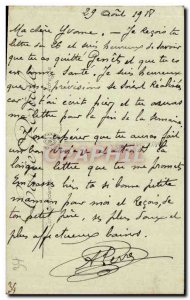 29 Août 1918
Ma chère Yvonne. Je Reçois ta
lettre du 25 et suis heureux de savoir
que tu as quitté Genêt et que tu es
en bonne santé. Je suis heureux
que mes prévisions se soient Réalisées
car je t'ai écrit hier et tu auras
ma lettre pour la fin de la semaine
espérer que tu auras fait
un bon voyage et attend la
longue lettre que tu me promets
Embrasse bien ta si bonne petite
maman pour moi et Reçois, de
ton petit, ses plus doux et
plus affectueux baisers.